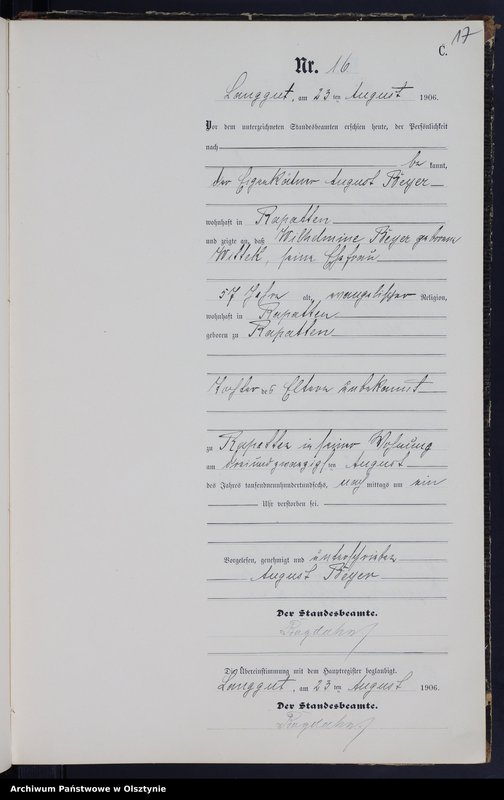 17
C.
Nr. 16
Langgut, am 23 ten August 1906.
Vor dem unterzeichneten Standesbeamten erschien heute, der Persönlichkeit
nach
be kannt,
der Eigenkätner August Beyer
wohnhaft in Rapatten
und zeigte an, daß Wilhelmine Beyer geborene
Wittek, seine Ehefrau
57 Jahre alt, evangelischer Religion,
wohnhaft in Rapatten
geboren zu Rapatten
Tochter der Eltern unbekannt
zu Rapatten in seiner Wohnung
am dreiundzwanzigsten August
des Jahres tausendneunhundertundsechs, nach mittags um ein
Uhr verstorben sei.
Vorgelesen, genehmigt und unterschrieben
August Beyer
Der Standesbeamte.
Die Übereinstimmung mit dem Hauptregister beglaubigt.
Langgut, am 23 ten August 1906.
Der Standesbeamte.
Archiwum Państwowe w Olsztynie